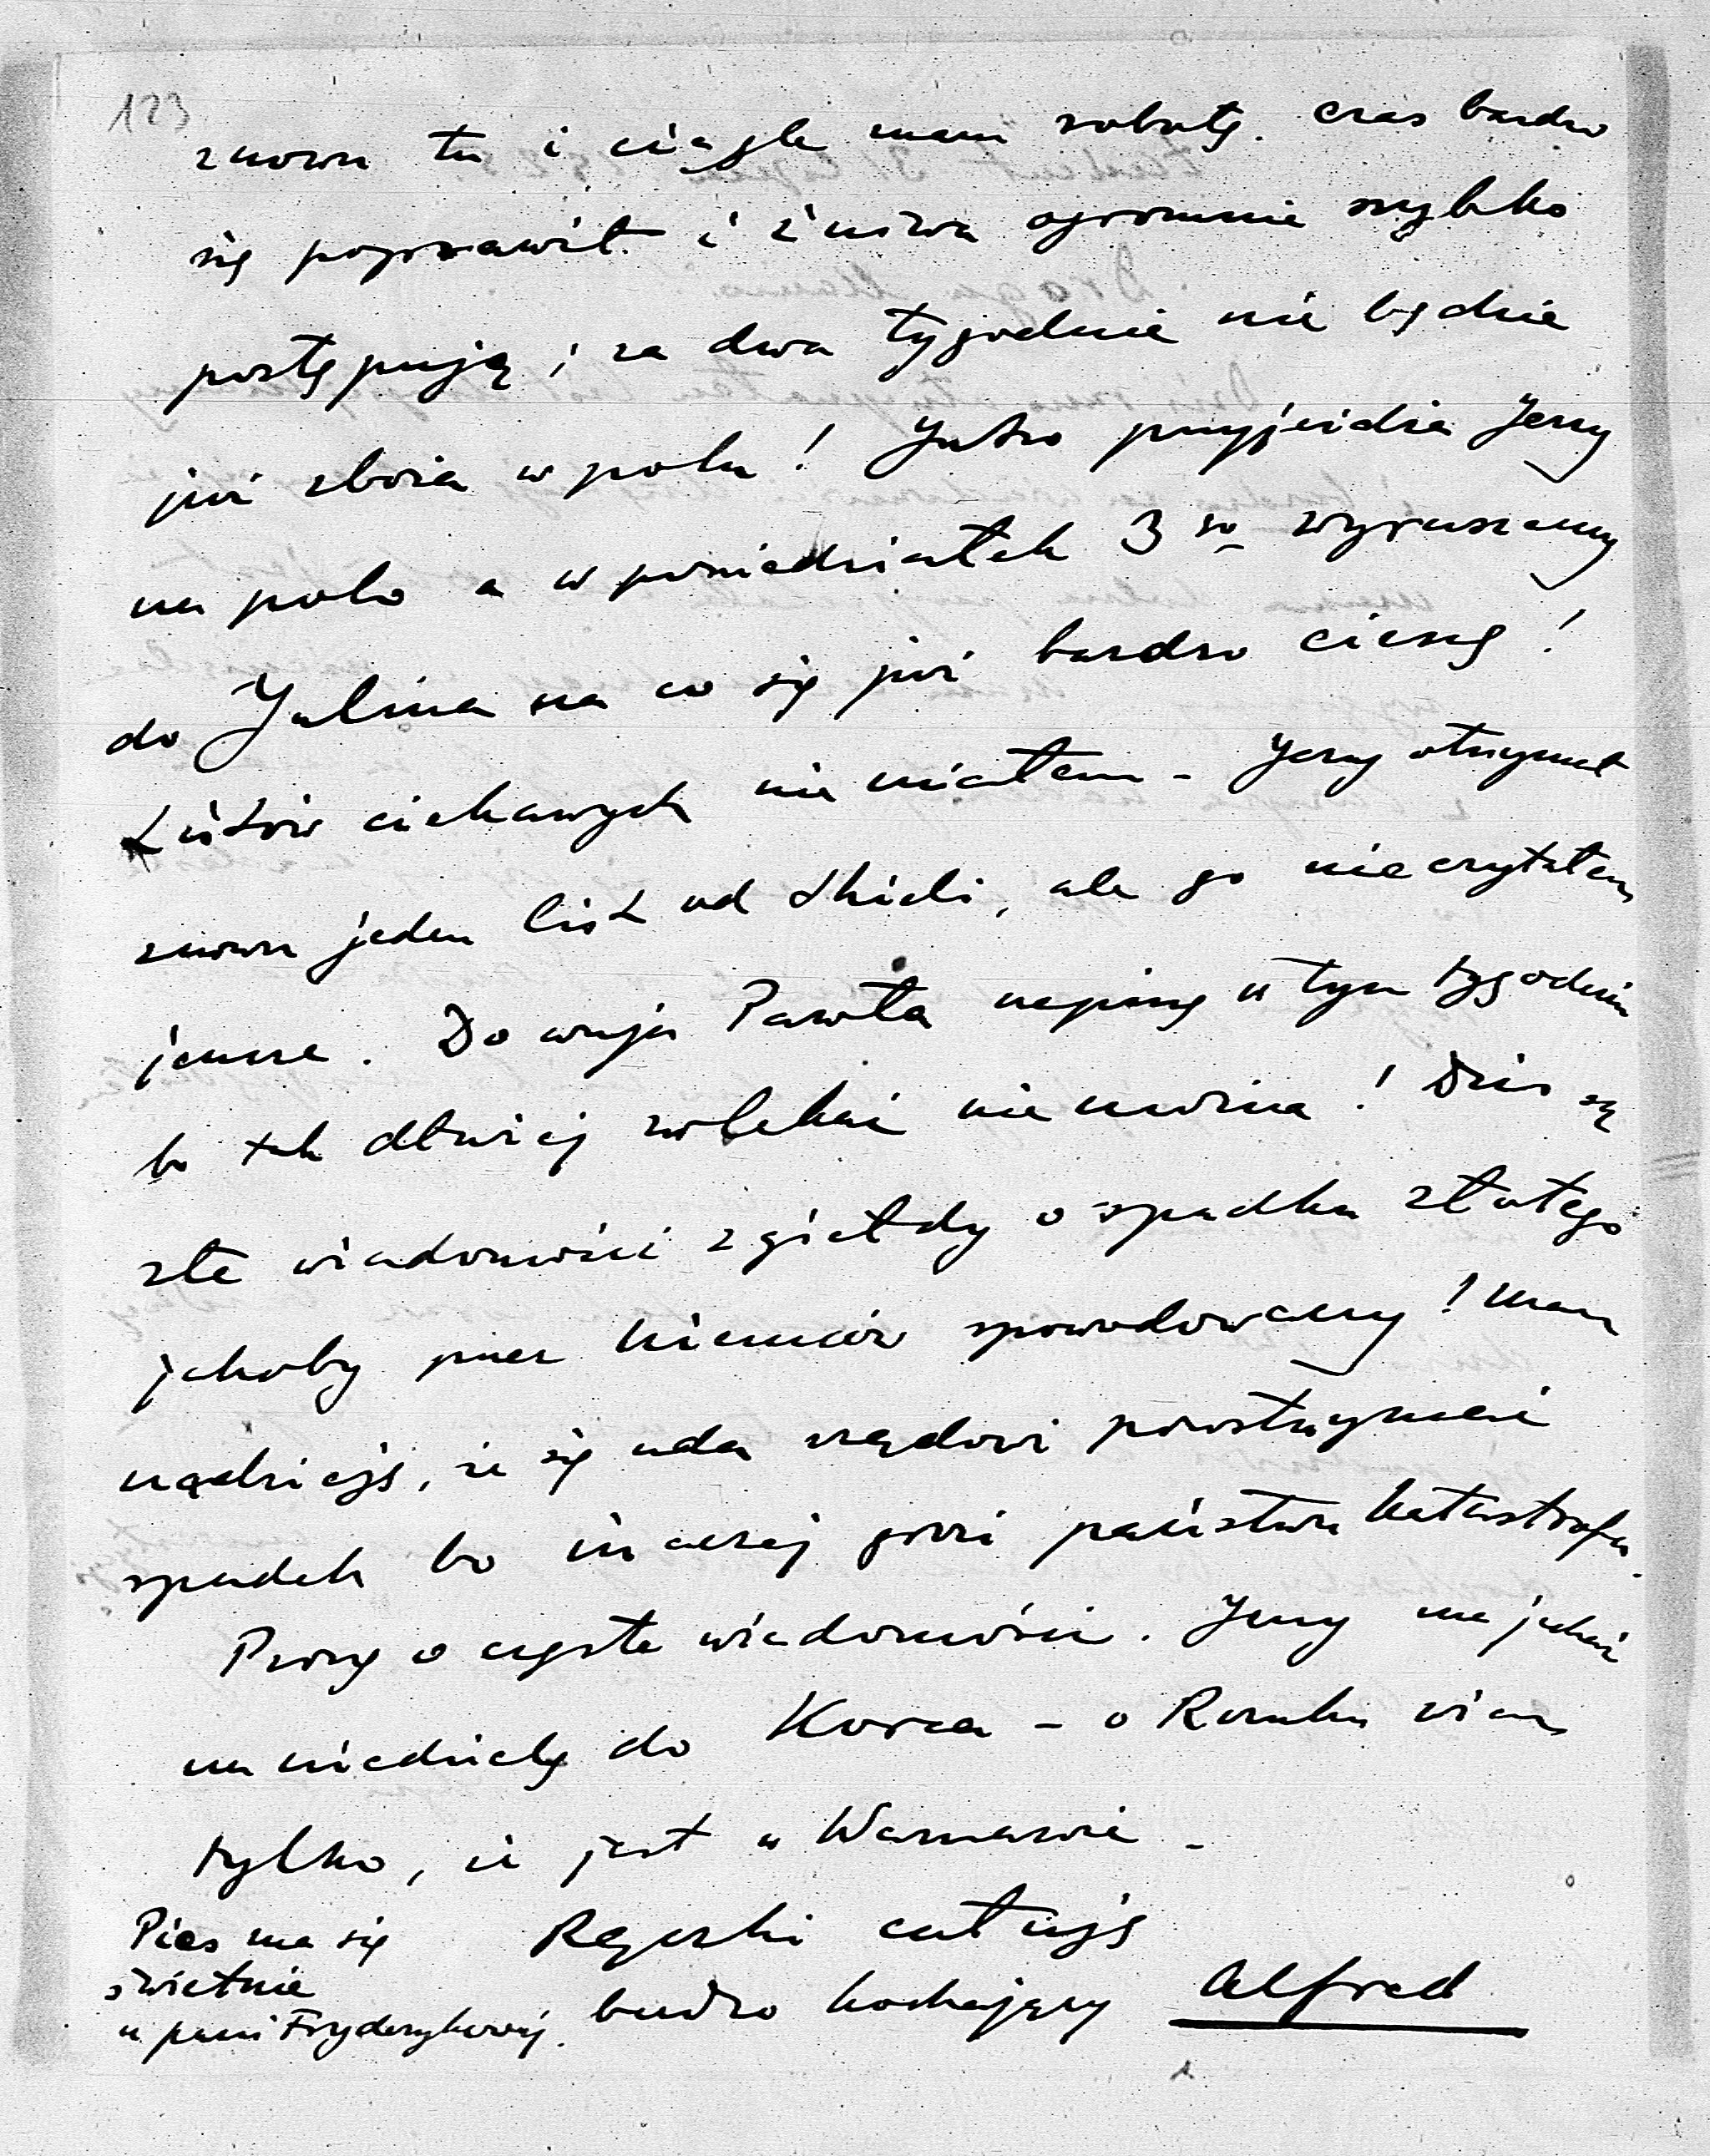 123
znowu tu i ciągle mam robotę. Czas bardzo
się poprawił i żniwa ogromnie szybko
postępują i za dwa tygodnie nie będzie
już zboża w polu! Jutro przyjeżdża Jerzy
na polo a w poniedziałek 3go wyruszamy
do Julina na co się już bardzo cieszę!
Listów ciekawych nie miałem - Jerzy otrzymał
znowu jeden list od , ale go nie czytałem
jeszcze. Do wuja Pawła napiszę w tym tygodniu
bo tak dłużej zwlekać nie można! Dziś są
złe wiadomości z giełdy o spadku złotego
jakoby przez Niemców spowodowany! Mam
nadzieję, że się uda rządowi powstrzymać
spadek bo inaczej grozi państwu katastrofa.
Proszę o częste wiadomości. Jerzy ma jechać
na niedzielę do Korca - o Romku wiem
tylko, że jest w Warszawie -
Rączki całuję
bardzo kochający Alfred
Pies ma się
świetnie
u pani Fryderykowej.